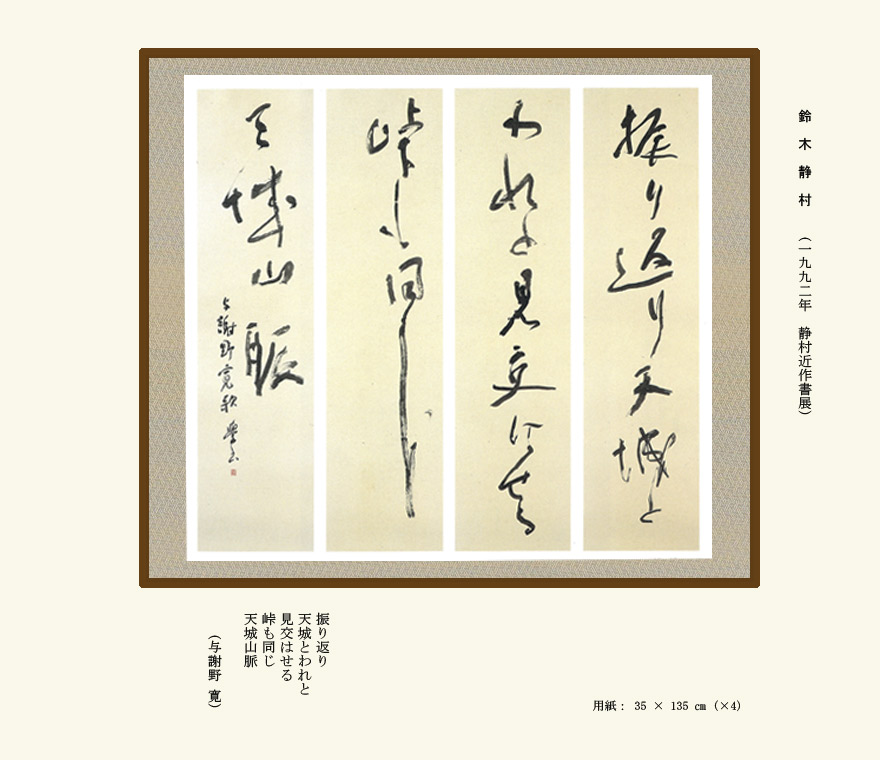 鈴木静村 (一九九二年 静村近作書展)
振り返り天城と
われと見交はせる
峠も同じ
天城山脈
与謝野寛歌
振り返り
天城とわれと
見交はせる
峠も同じ
天城山脈
(与謝野 寛)
用紙: 35 × 135 cm (×4)